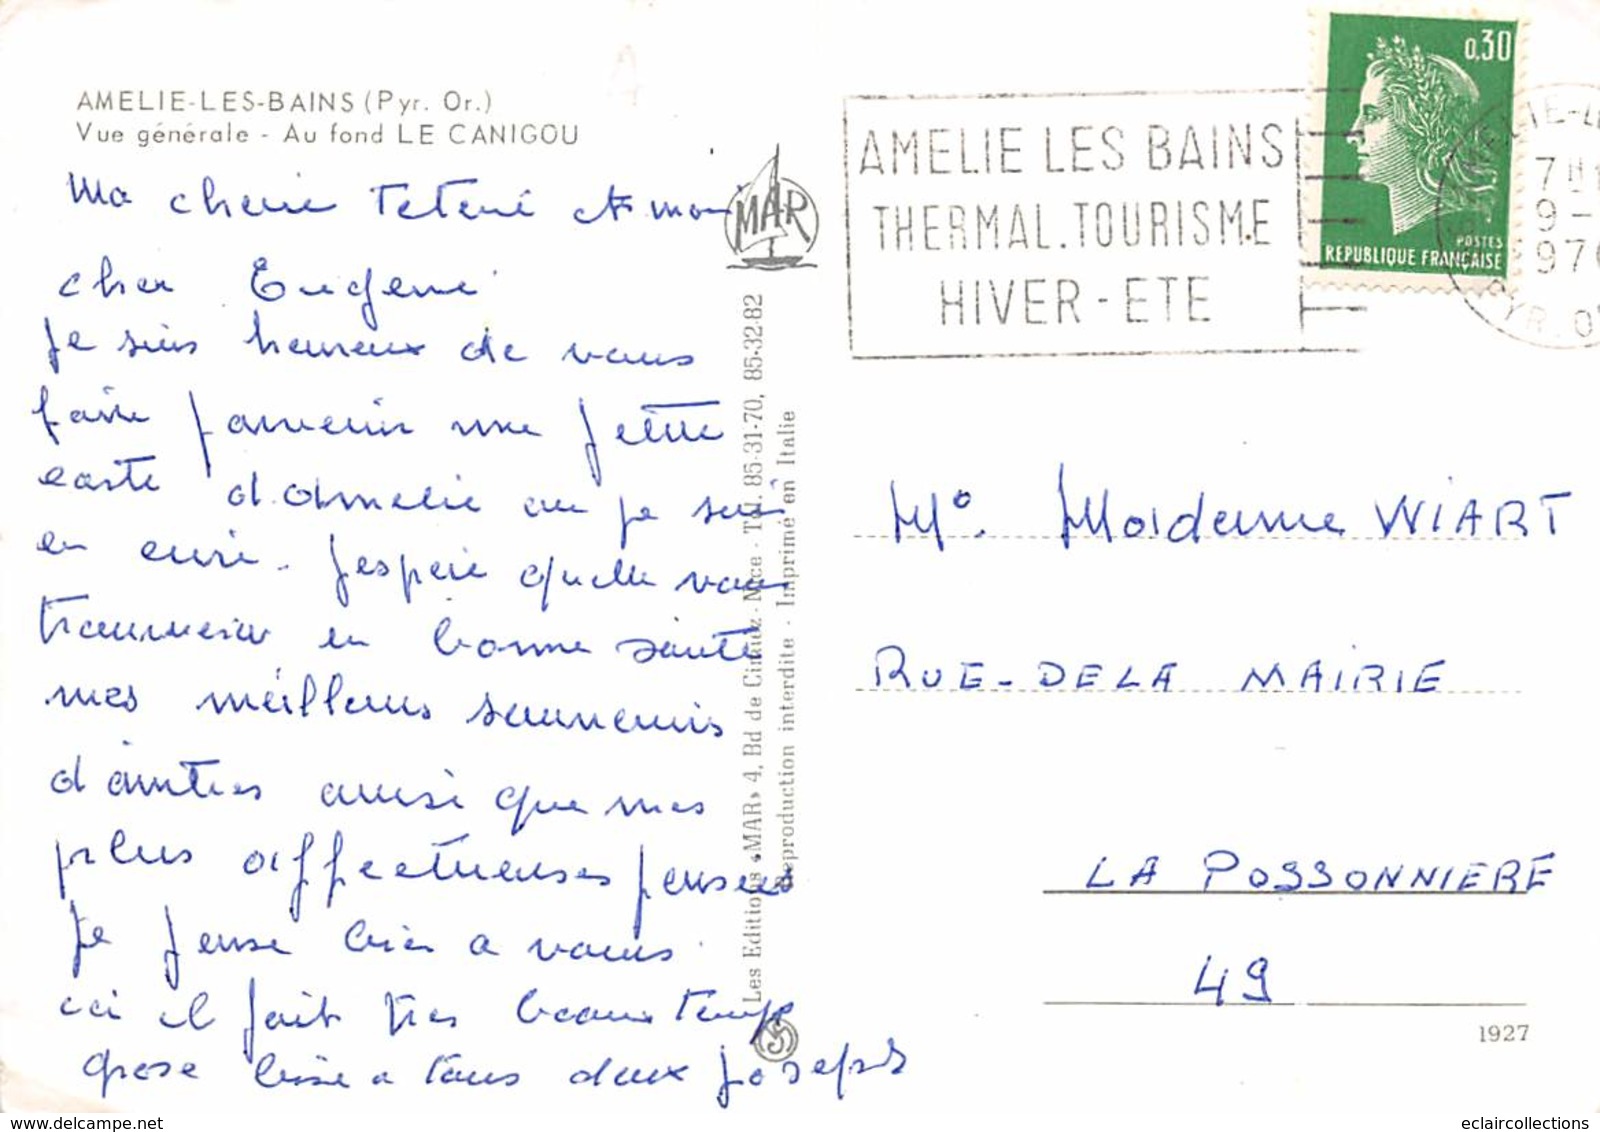 AMELIE-LES-BAINS (Pyr. Or.)
Vue générale - Au fond LE CANIGOU
Ma cherie Teterie et mon
cher Eugene
Je suis heureux de vous
faire parvenir une petite
carte d'Amelie ou je suis
en cure. J'espere quelle vous
trouvera en bonne santé
mes meilleurs souvenirs
d'amities aussi que mes
plus affectueuses pensées
Je pense bien a vous.
ici il fait tres beau temps
grose bise a tous deux Joseph
MAR
Les Editions «MAR» 4, Bd de Cimiez - Nice - Tel. 85-31-70, 85-32-82
Reproduction interdite - Imprimé en Italie
AMELIE LES BAINS
THERMAL.TOURISME
HIVER - ETE
0,30
POSTES
REPUBLIQUE FRANÇAISE
Mr. Madame WIART
RUE-DE LA MAIRIE
LA POSSONNIERE
49
1927
eclaircollections